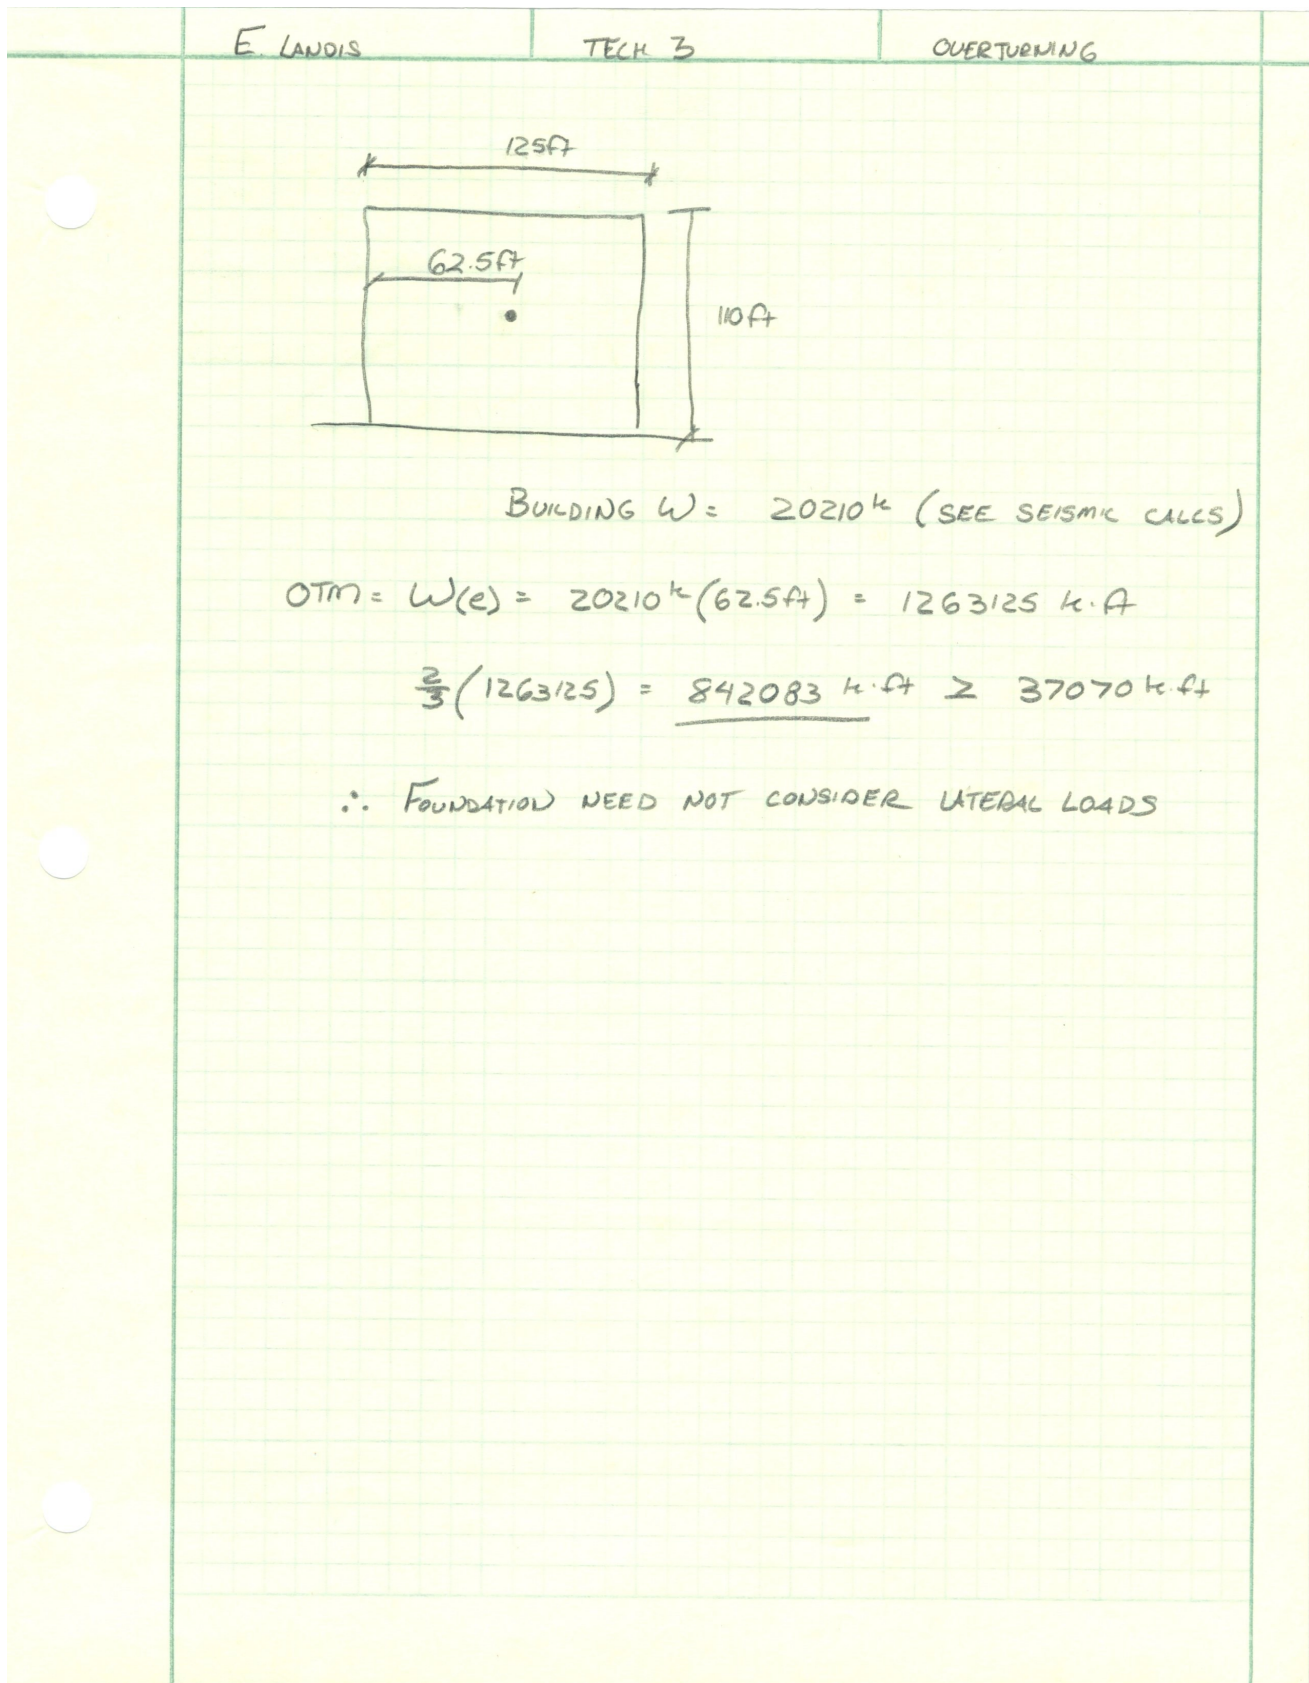 E. LANDIS TECH 3 OVERTURNING
125ft
62.5ft
110 ft
BUILDING W = 20210 k (SEE SEISMIC CALCS)
OTM = W(e) = 20210 k (62.5ft) = 1263125 k·ft
2/3 (1263125) = 842083 k·ft ≥ 37070 k·ft
∴ FOUNDATION NEED NOT CONSIDER LATERAL LOADS